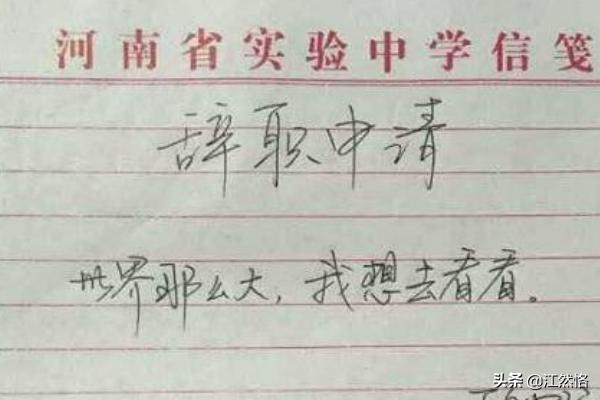 河南省实验中学信笺
辞职申请
世界那么大，我想去看看。
头条 @江然恪